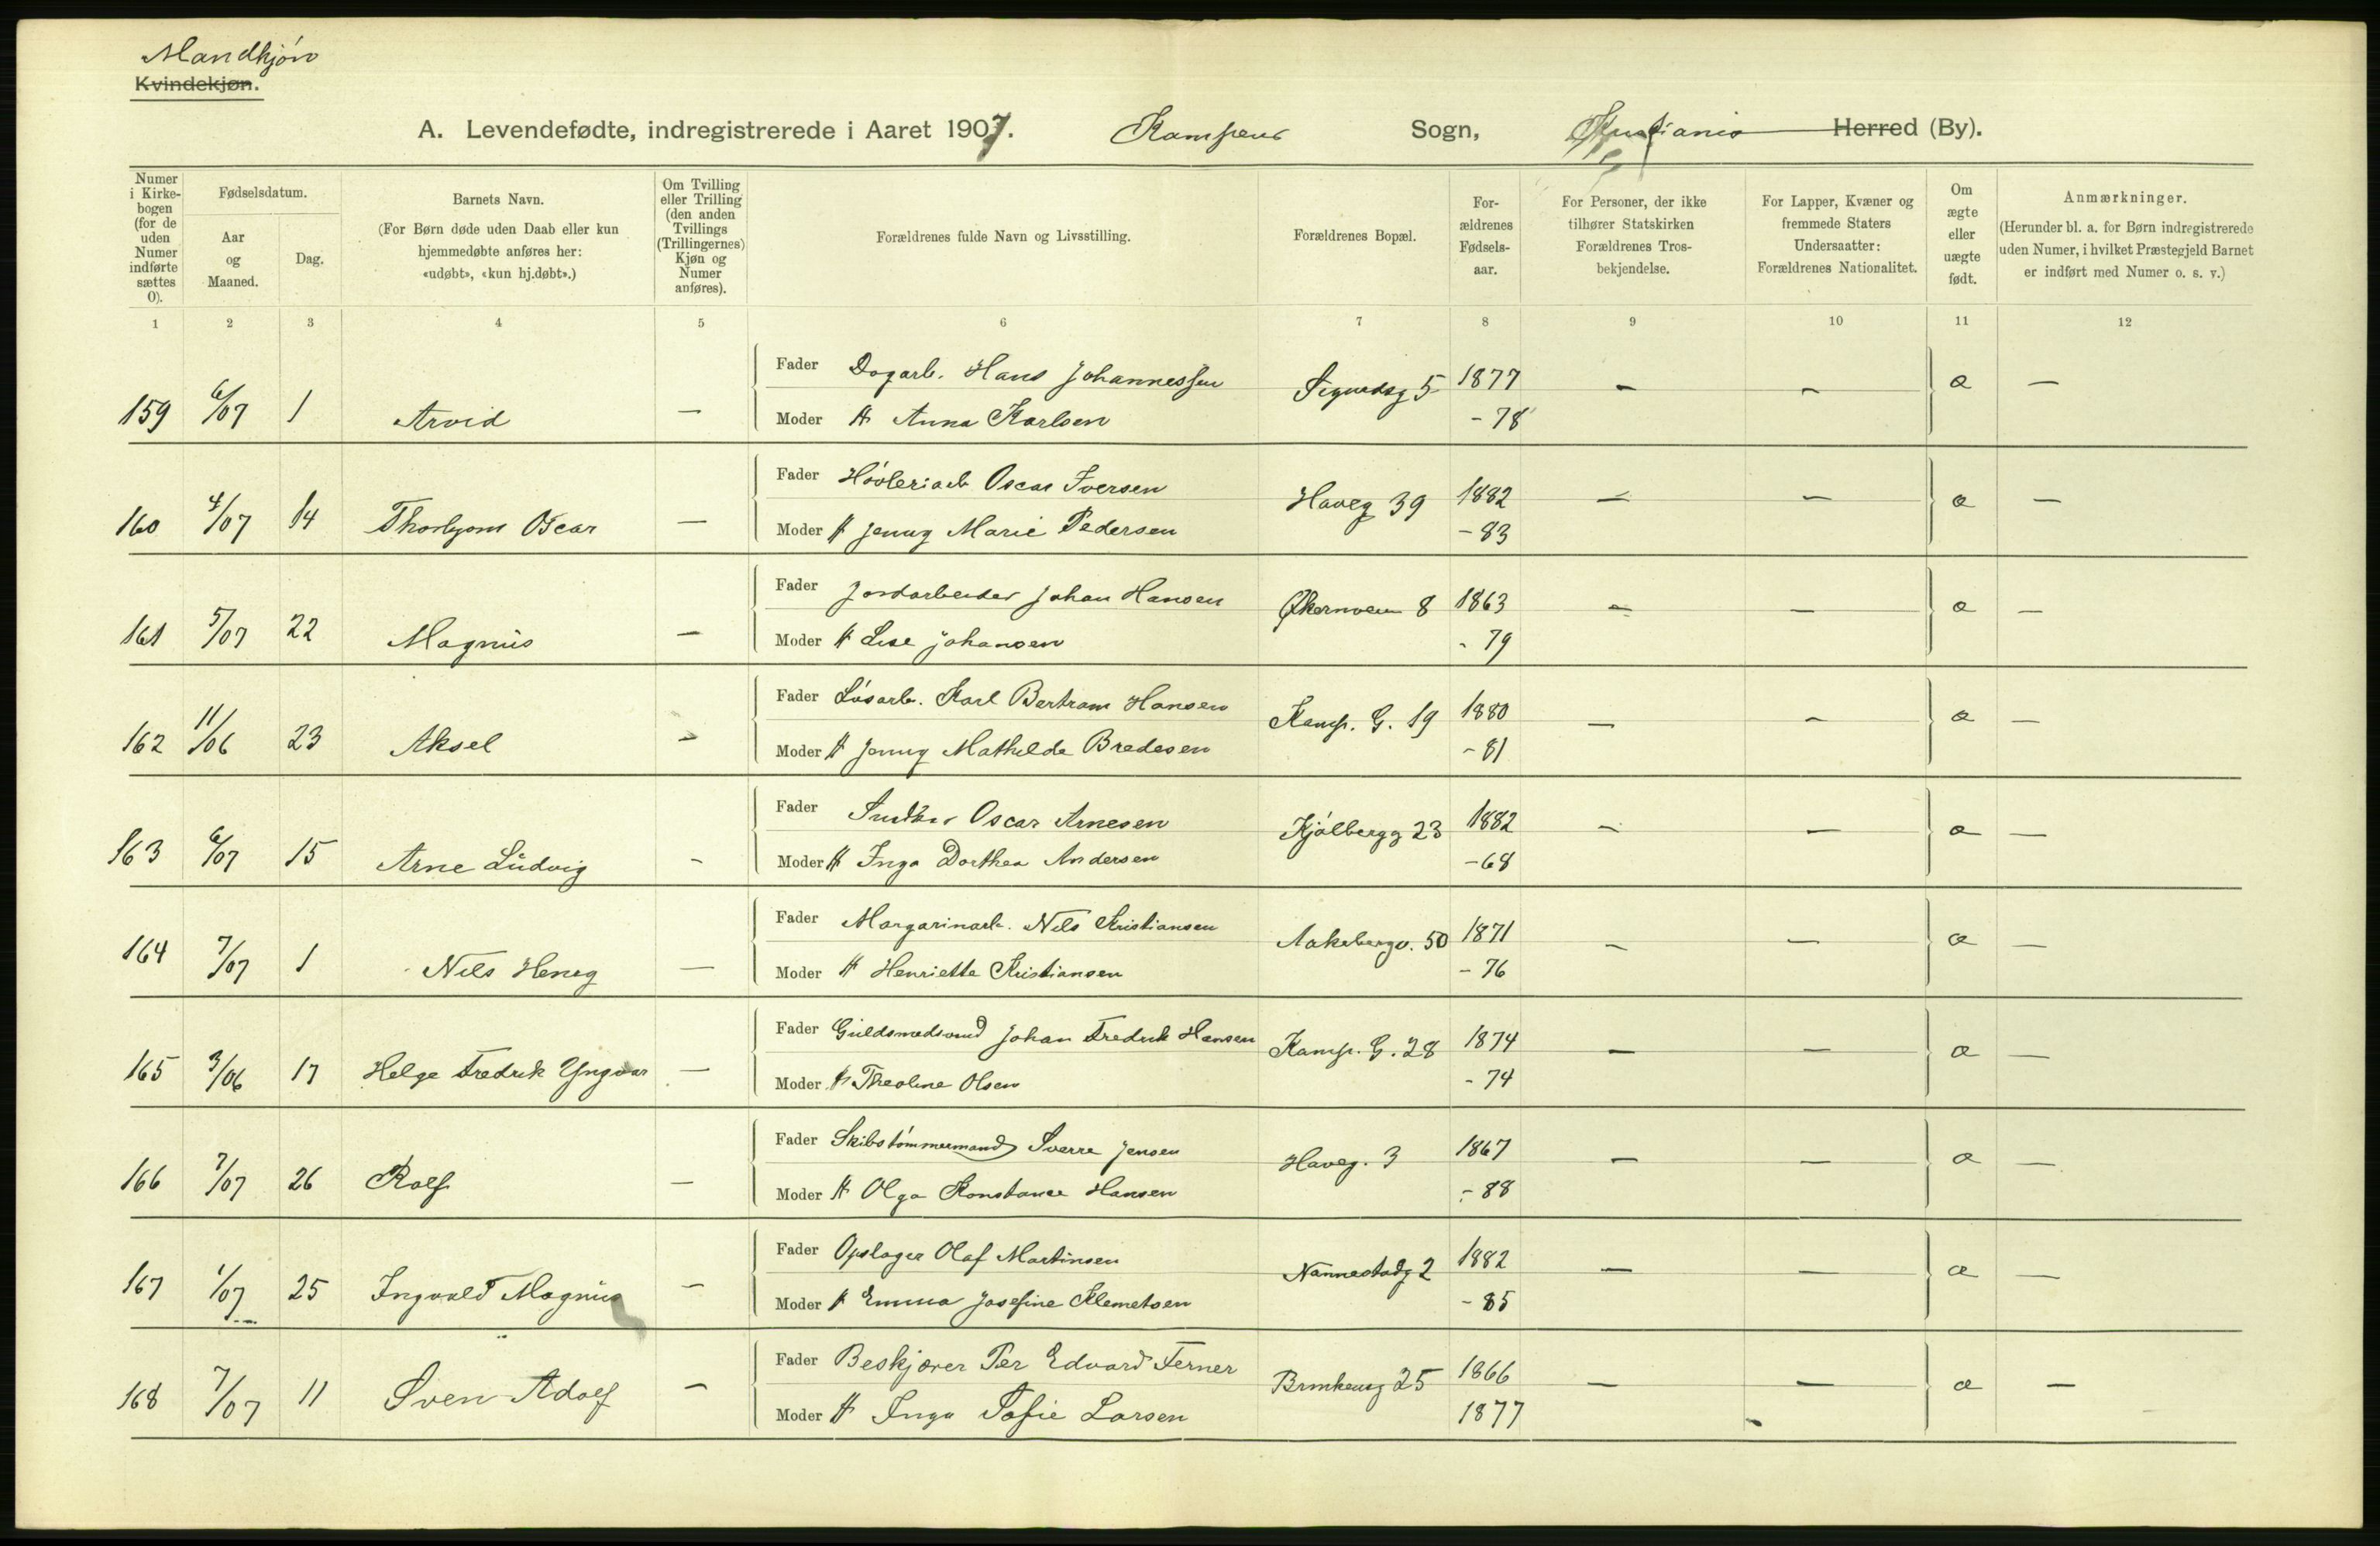 Mandkjøn
Kvindekjøn.
A. Levendefødte, indregistrerede i Aaret 1907. Kampens Sogn, Kristiania Herred (By).
Numer i Kirkebogen (for de uden Numer indførte sættes 0).
Fødselsdatum.
Aar og Maaned.
Dag.
Barnets Navn.
(For Børn døde uden Daab eller kun hjemmedøbte anføres her: «udøbt», «kun hj.døbt».)
Om Tvilling eller Trilling (den anden Tvillings (Trillingernes) Kjøn og Numer anføres).
Forældrenes fulde Navn og Livsstilling.
Forældrenes Bopæl.
Forældrenes Fødselsaar.
For Personer, der ikke tilhører Statskirken Forældrenes Trosbekjendelse.
For Lapper, Kvæner og fremmede Staters Undersaatter: Forældrenes Nationalitet.
Om ægte eller uægte født.
Anmærkninger.
(Herunder bl. a. for Børn indregistrerede uden Numer, i hvilket Præstegjeld Barnet er indført med Numer o. s. v.)
1 2 3 4 5 6 7 8 9 10 11 12
Fader Dagarb. Hans Johannessen 1877
159 6/07 1 Arvid — Sigurdsg 5 — — æ —
Moder H Anna Karlsen - 78
Fader Høvleriarb Oscar Iversen 1882
160 4/07 14 Oscar — Haveg 39 — — æ —
Moder H Jenny Marie Pedersen - 83
Fader Jordarbeider Johan Hansen 1863
161 5/07 22 Magnus — Økernveien 8 — — æ —
Moder H Lise Johansen - 79
Fader Løsarb. Karl Bertram Hansen 1880
162 11/06 23 Aksel — Kamp. G. 19 — — æ —
Moder H Jenny Mathilde Bredesen - 81
Fader Snedker Oscar Arnesen 1882
163 6/07 15 Arne Ludvig — Kjølbergg 23 — — æ —
Moder H Inga Dorthea Andersen - 68
Fader Margarinarb. Nils Kristiansen 1871
164 7/07 1 Nils Henry — Aakebergv. 50 — — æ —
Moder H Henriette Kristiansen - 76
Fader Guldsmedsvend Johan Fredrik Hansen 1874
165 3/06 17 Helge Fredrik Yngvar — Kamp. G. 28 — — æ —
Moder H Theoline Olsen - 74
Fader Skibstømmermand Sverre Jensen 1867
166 7/07 26 Rolf — Haveg. 3 — — æ —
Moder H Olga Konstance Hansen - 88
Fader Opslager Olaf Martinsen 1882
167 1/07 25 Ingvald Magnus — Nannestadg 2 — — æ —
Moder H Emma Josefine Klemetsen - 85
Fader Beskjærer Per Edvard Ferner 1866
168 7/07 11 Sven Adolf — 25 — — æ —
Moder H Inga Sofie Larsen 1877